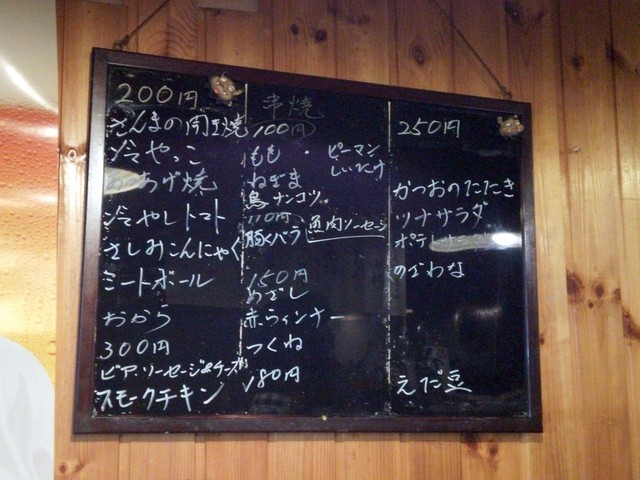 200円
さんまの開き焼
冷やっこ
あげ焼
冷やしトマト
さしみこんにゃく
ミートボール
おから
300円
ビアソーセージ&チーズ
スモークチキン
串焼
100円
もも・ピーマン
しいたけ
ねぎま
鳥ナンコツ
110円
豚バラ
魚肉ソーセージ
150円
めざし
赤ウィンナー
つくね
180円
250円
かつおのたたき
ツナサラダ
ポテト
のざわな
えだ豆